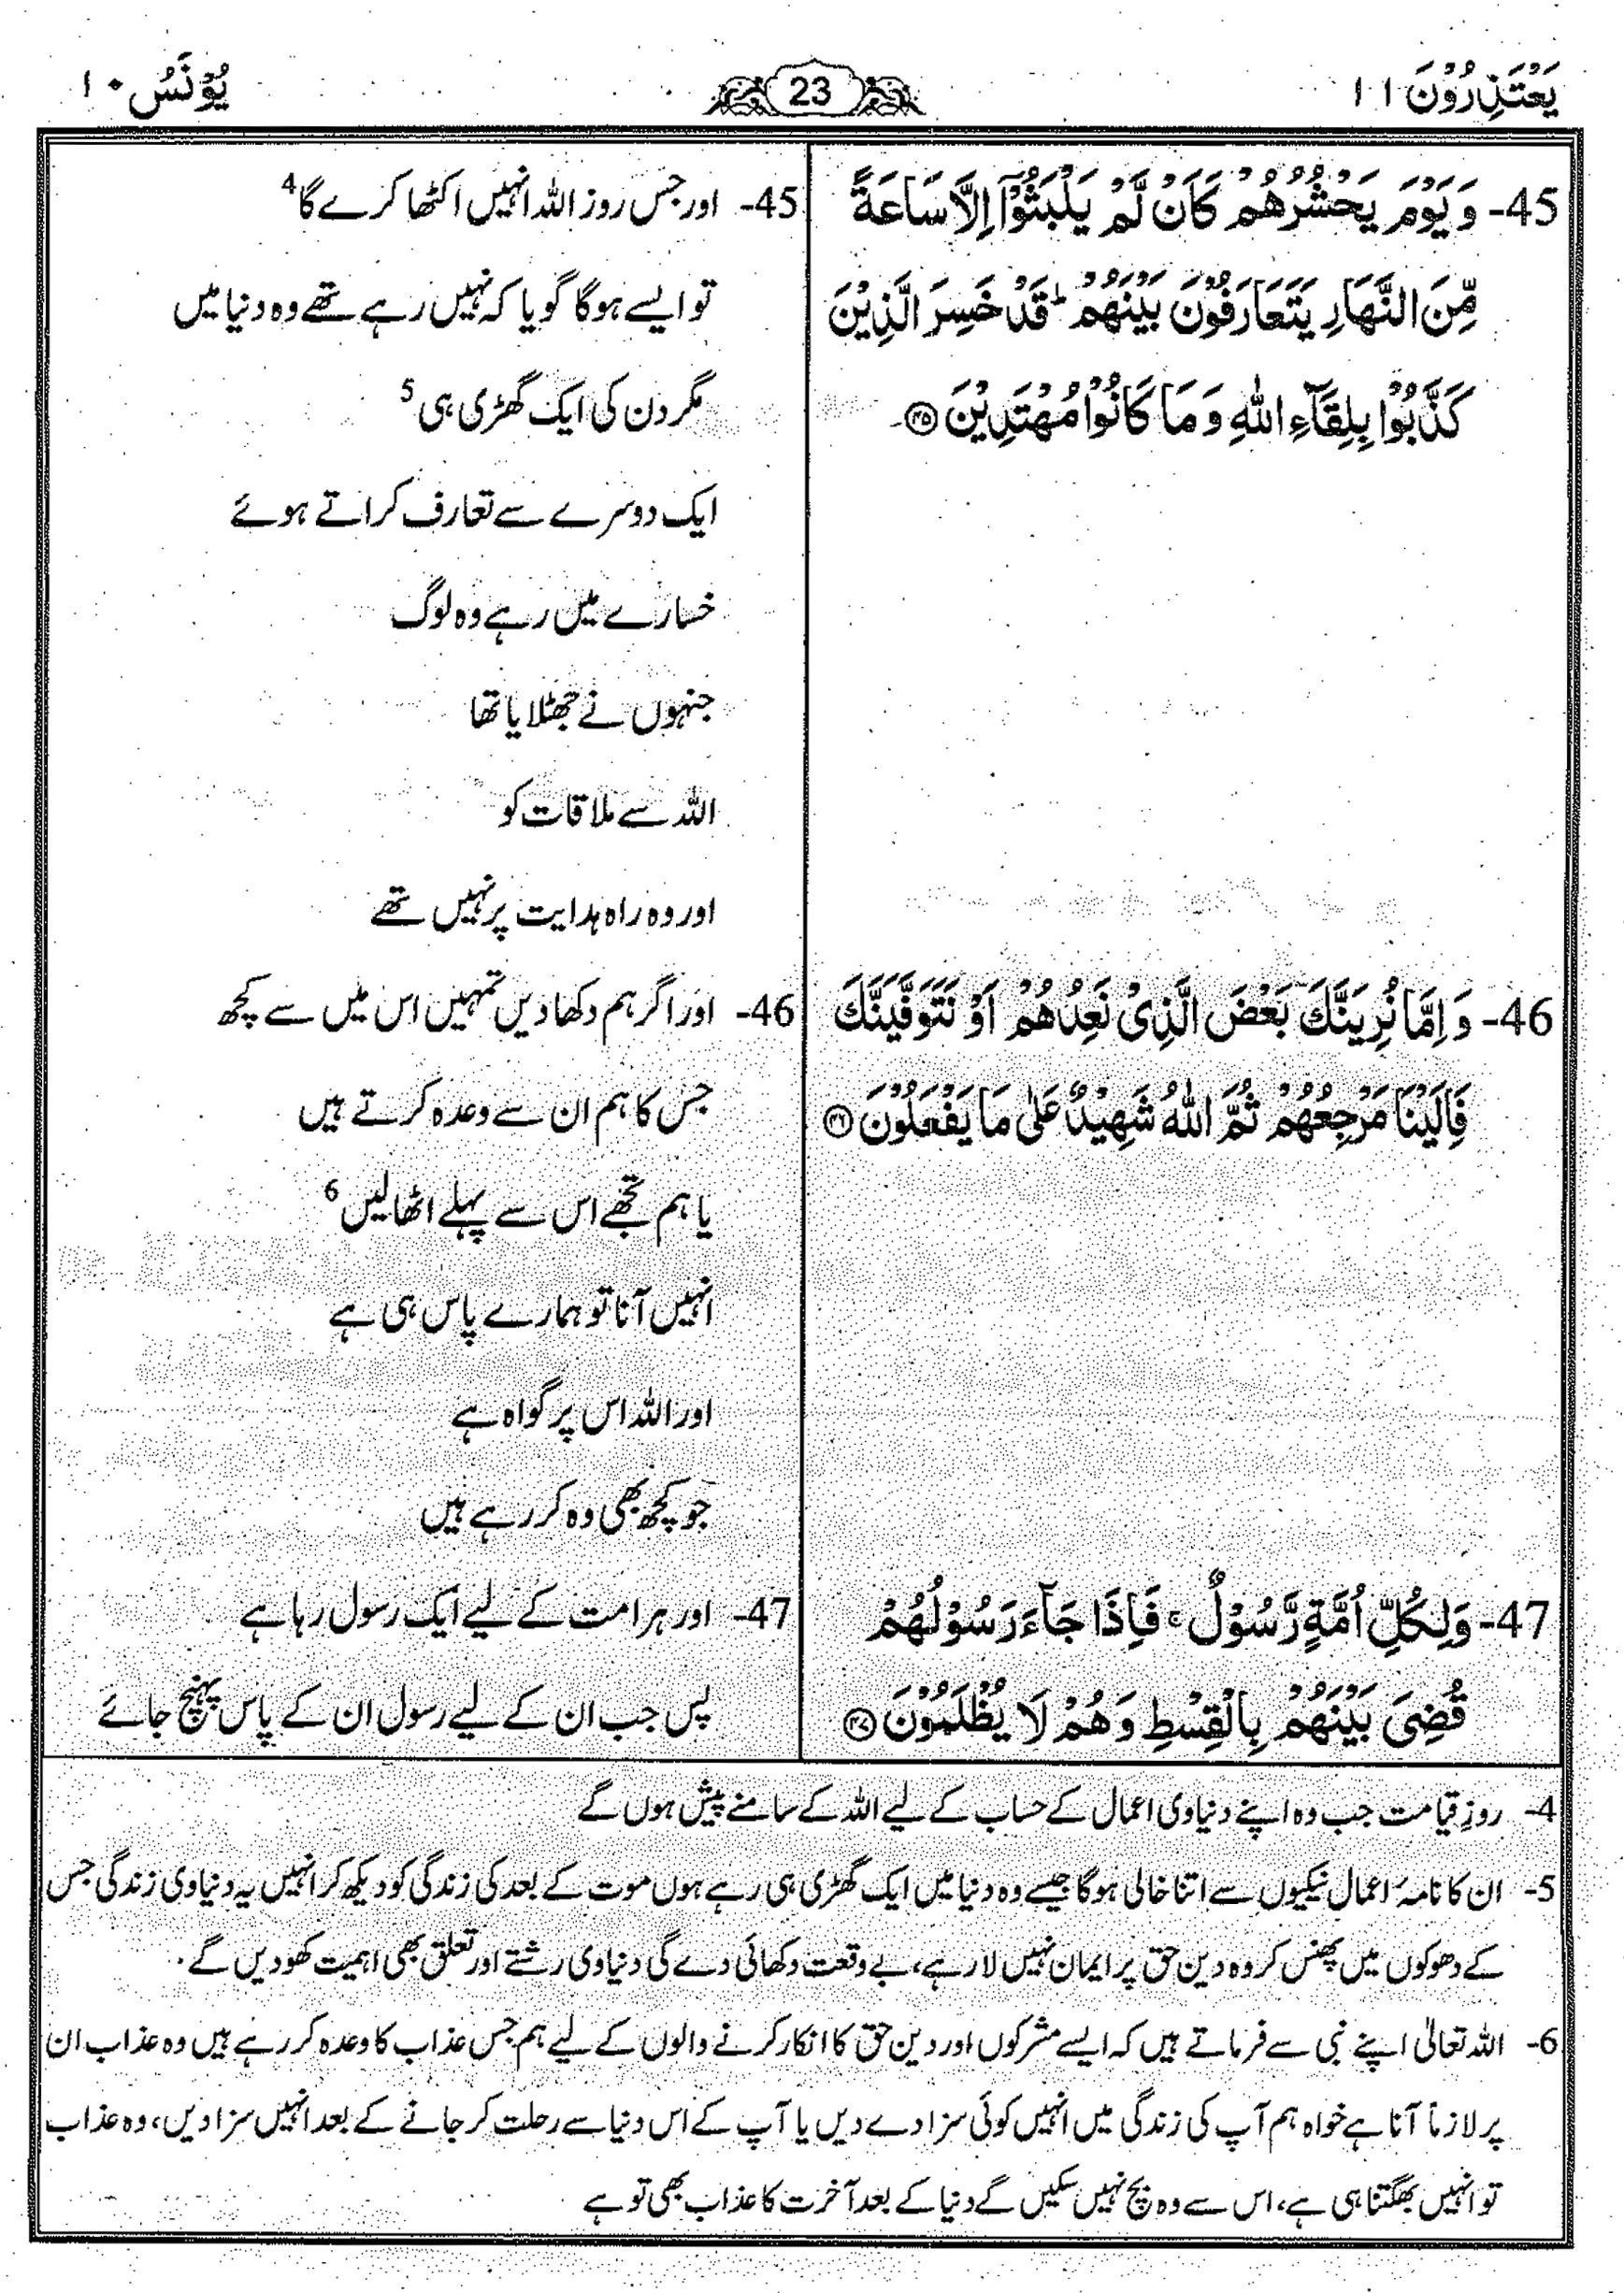 یَعْتَذِرُوْنَ ۱۱
23
یُوْنُس ۱۰
45- وَ یَوْمَ یَحْشُرُهُمْ كَاَنْ لَّمْ یَلْبَثُوْۤا اِلَّا سَاعَةً
مِّنَ النَّهَارِ یَتَعَارَفُوْنَ بَیْنَهُمْ ؕ قَدْ خَسِرَ الَّذِیْنَ
كَذَّبُوْا بِلِقَآءِ اللّٰهِ وَ مَا كَانُوْا مُهْتَدِیْنَ ۝۴۵
46- وَ اِمَّا نُرِیَنَّكَ بَعْضَ الَّذِیْ نَعِدُهُمْ اَوْ نَتَوَفَّیَنَّكَ
فَاِلَیْنَا مَرْجِعُهُمْ ثُمَّ اللّٰهُ شَهِیْدٌ عَلٰی مَا یَفْعَلُوْنَ ۝۴۶
47- وَ لِكُلِّ اُمَّةٍ رَّسُوْلٌ ۚ فَاِذَا جَآءَ رَسُوْلُهُمْ
قُضِیَ بَیْنَهُمْ بِالْقِسْطِ وَ هُمْ لَا یُظْلَمُوْنَ ۝۴۷
45- اور جس روز اللہ انہیں اکٹھا کرے گا4
تو ایسے ہوگا گویا کہ نہیں رہے تھے وہ دنیا میں
مگر دن کی ایک گھڑی ہی5
ایک دوسرے سے تعارف کراتے ہوئے
خسارے میں رہے وہ لوگ
جنہوں نے جھٹلایا تھا
اللہ سے ملاقات کو
اور وہ راہ ہدایت پر نہیں تھے
46- اور اگر ہم دکھا دیں تمہیں اس میں سے کچھ
جس کا ہم ان سے وعدہ کرتے ہیں
یا ہم تجھے اس سے پہلے اٹھا لیں6
انہیں آنا تو ہمارے پاس ہی ہے
اور اللہ اس پر گواہ ہے
جو کچھ بھی وہ کر رہے ہیں
47- اور ہر امت کے لیے ایک رسول رہا ہے
پس جب ان کے لیے رسول ان کے پاس پہنچ جائے
4- روزِ قیامت جب وہ اپنے دنیاوی اعمال کے حساب کے لیے اللہ کے سامنے پیش ہوں گے
5- ان کا نامۂ اعمال نیکیوں سے اتنا خالی ہوگا جیسے وہ دنیا میں ایک گھڑی ہی رہے ہوں موت کے بعد کی زندگی کو دیکھ کر انہیں یہ دنیاوی زندگی جس
کے دھوکوں میں پھنس کر وہ دین حق پر ایمان نہیں لا رہے، بے وقعت دکھائی دے گی دنیاوی رشتے اور تعلق بھی اہمیت کھو دیں گے.
6- اللہ تعالیٰ اپنے نبی سے فرماتے ہیں کہ ایسے مشرکوں اور دین حق کا انکار کرنے والوں کے لیے ہم جس عذاب کا وعدہ کر رہے ہیں وہ عذاب ان
پر لازماً آنا ہے خواہ ہم آپ کی زندگی میں انہیں کوئی سزا دے دیں یا آپ کے اس دنیا سے رحلت کر جانے کے بعد انہیں سزا دیں، وہ عذاب
تو انہیں بھگتنا ہی ہے، اس سے وہ بچ نہیں سکیں گے دنیا کے بعد آخرت کا عذاب بھی تو ہے